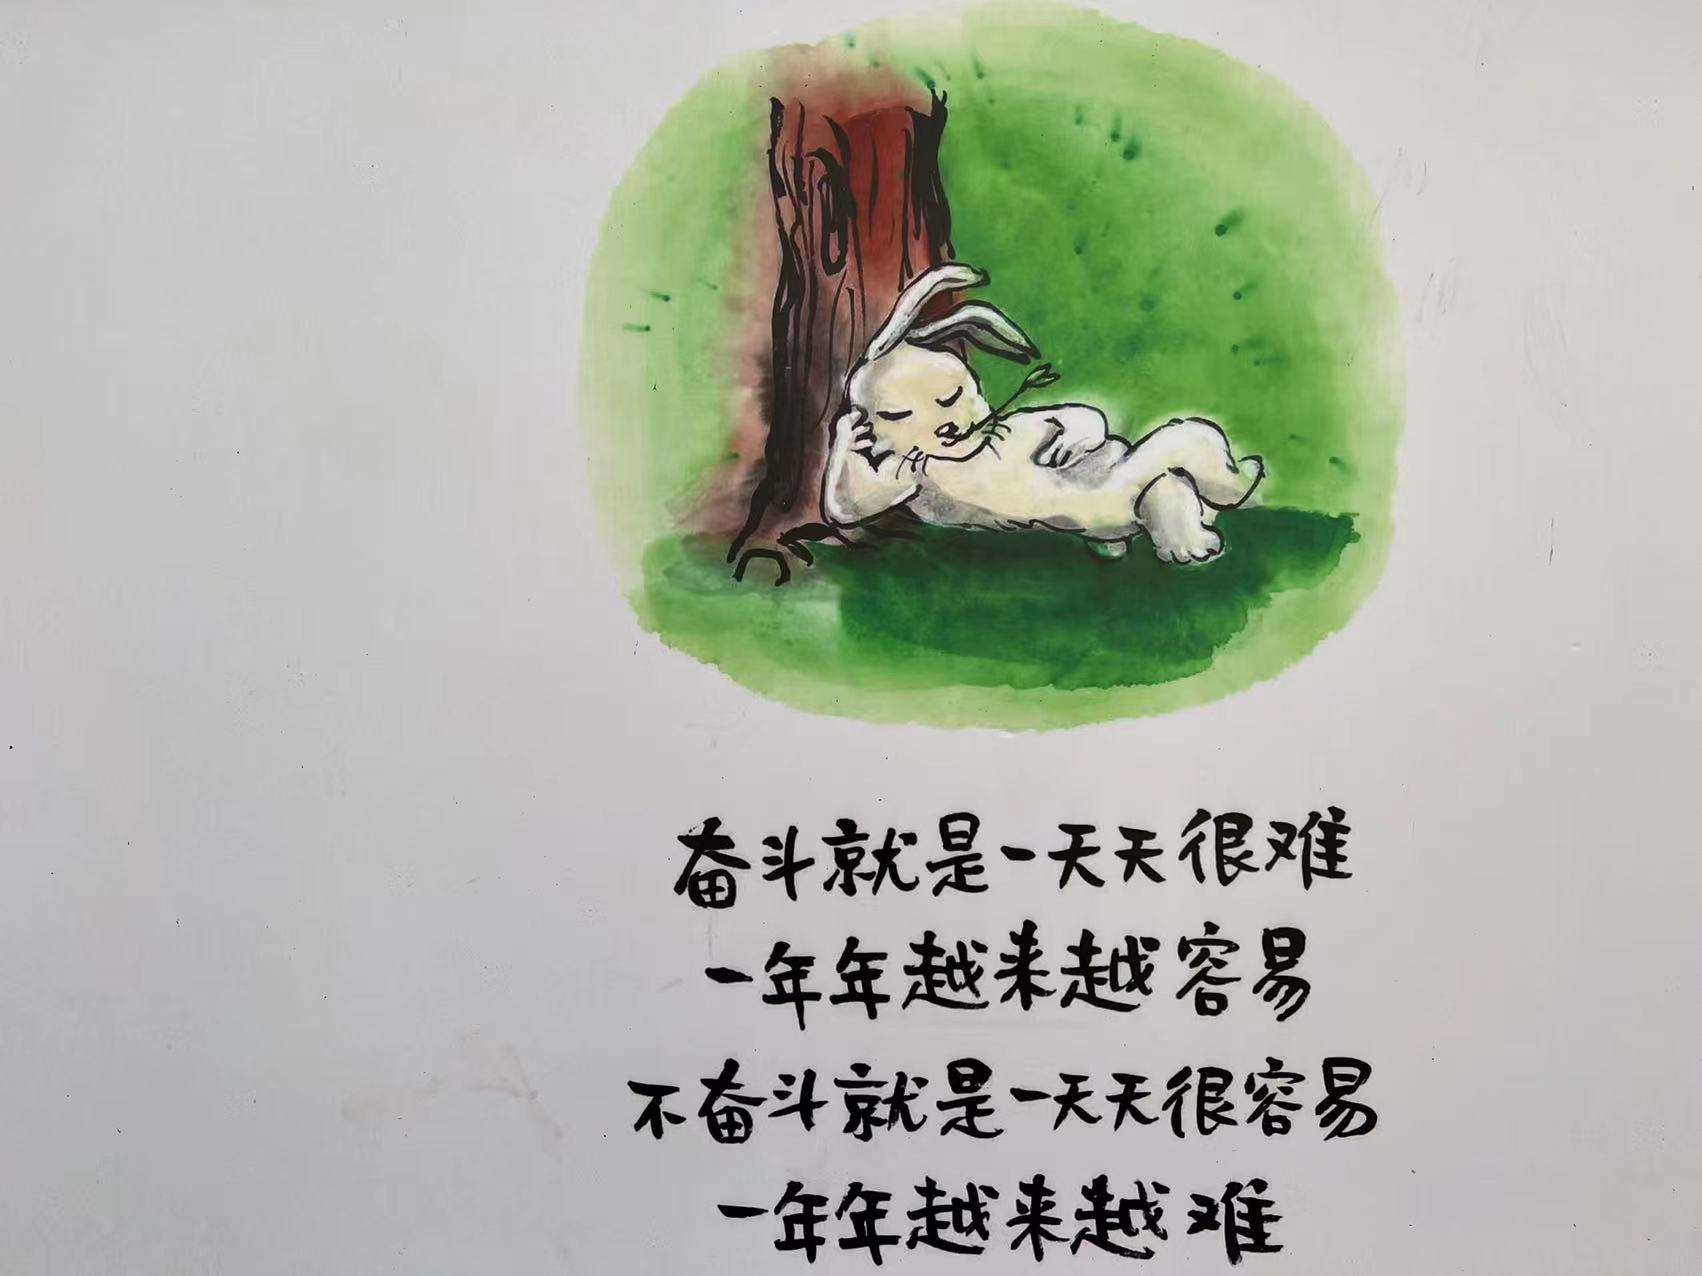 奋斗就是一天天很难
一年年越来越容易
不奋斗就是一天天很容易
一年年越来越难